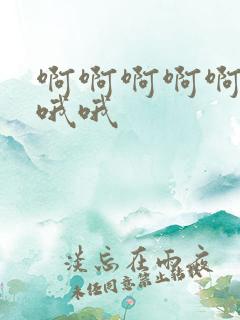 啊啊啊啊啊
哦哦
淡忘在雨夜
未经同意禁止转载